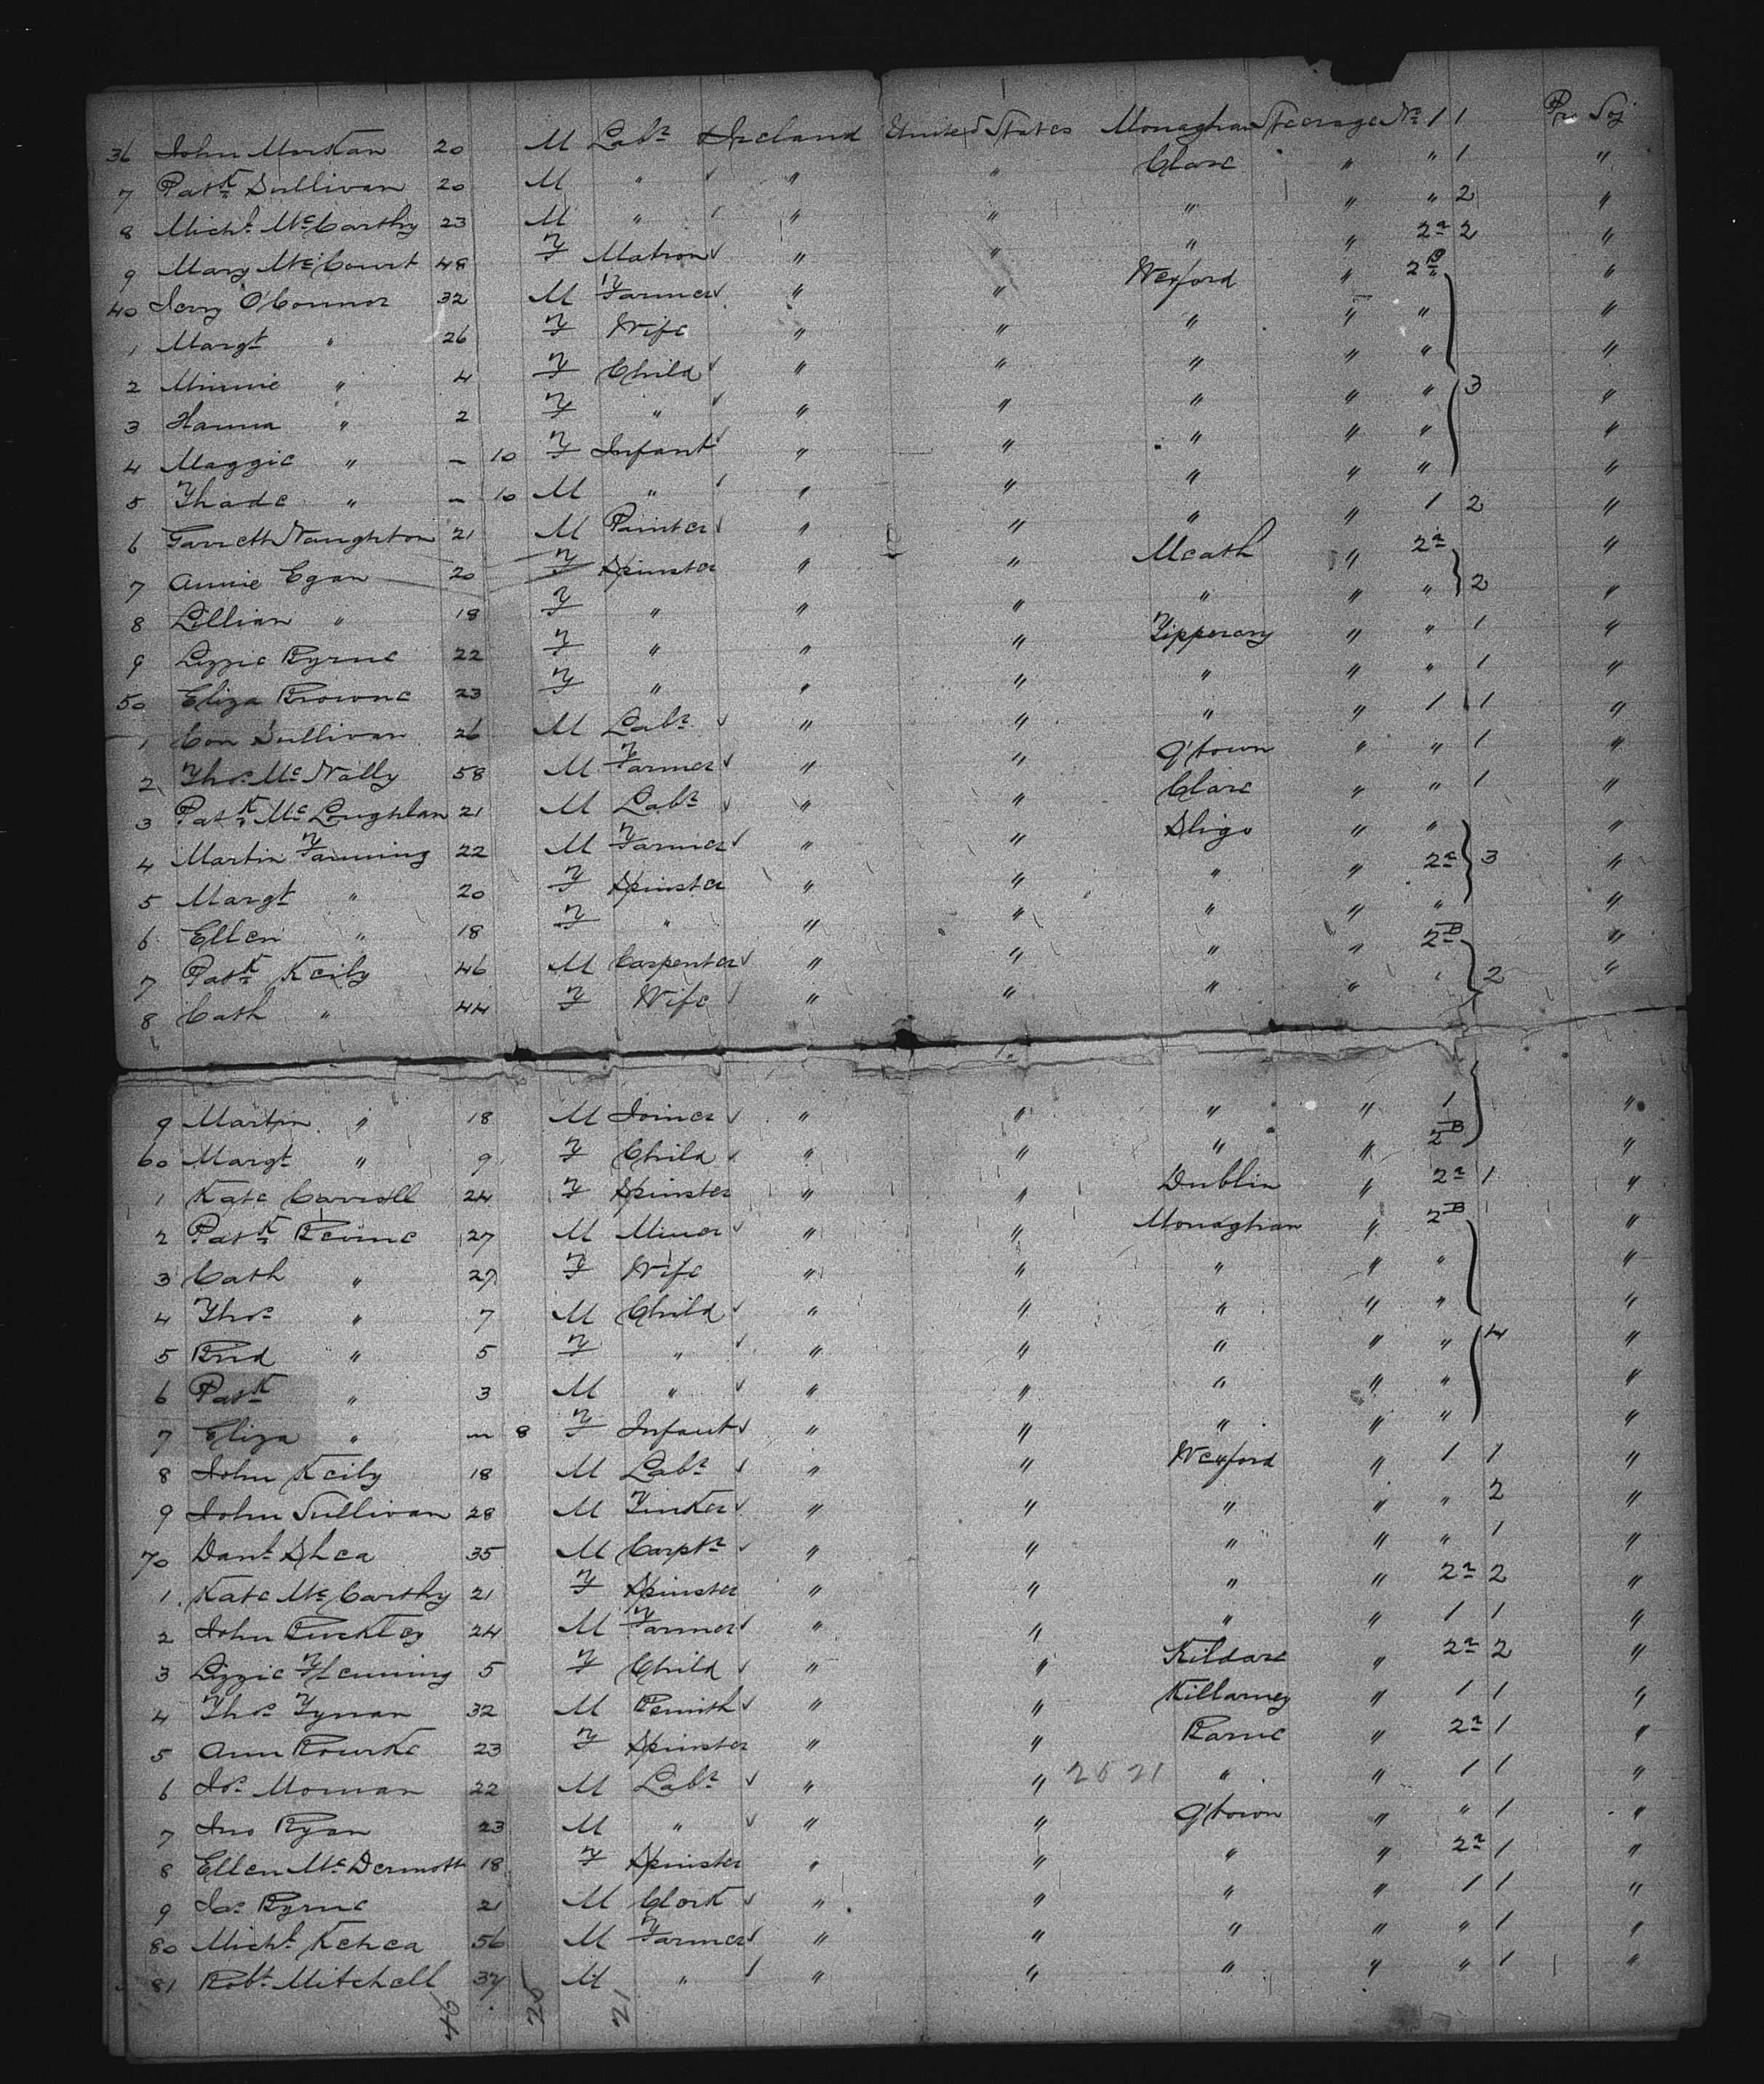 36 John Morkan 20 M Labr Ireland United States Monaghan Steerage No 1 1 Pro Soj
7 Patk Sullivan 20 M " " " Clare " " 1 "
8 Michl McCarthy 23 M " " " " " " 2 "
9 Mary McCourt 48 F Matron " " " " 2a 2 "
40 Jerry O'Connor 32 M Farmer " " Wexford " 2B "
1 Margt " 26 F Wife " " " " " "
2 Minnie " 4 F Child " " " " " "
3 Hanna " 2 F " " " " " " 3 "
4 Maggie " - 10 F Infant " " " " " "
5 Thade " - 10 M " " " " " " "
6 Garrett Naughton 21 M Painter " " " " 1 2 "
7 Annie Egan 20 F Spinster " " Meath " 2a "
8 Lillian " 18 F " " " " " " 2 "
9 Lizzie Byrne 22 F " " " Tipperary " " 1 "
50 Eliza Browne 23 F " " " " " " 1 "
1 Con Sullivan 26 M Labr " " " " 1 1 "
2 Thos McNally 58 M Farmer " " Q'town " " 1 "
3 Patk McLoughlan 21 M Labr " " Clare " " 1 "
4 Martin Fanning 22 M Farmer " " Sligo " " "
5 Margt " 20 F Spinster " " " " 2a 3 "
6 Ellen " 18 F " " " " " " "
7 Patk Keily 46 M Carpenter " " " " 2B "
8 Cath " 44 F Wife " " " " " 2 "
9 Martin " 18 M Joiner " " " " 1 "
60 Margt " 9 F Child " " " " 2B "
1 Kate Carroll 24 F Spinster " " Dublin " 2a 1 "
2 Patk Beirne 27 M Miner " " Monaghan " 2B "
3 Cath " 27 F Wife " " " " " "
4 Thos " 7 M Child " " " " " "
5 Brid " 5 F " " " " " " 4 "
6 Patk " 3 M " " " " " " "
7 Eliza " - 8 F Infant " " " " " "
8 John Keily 18 M Labr " " Wexford " 1 1 "
9 John Sullivan 28 M Tinker " " " " " 2 "
70 Danl Shea 35 M Carptr " " " " " 1 "
1 Kate McCarthy 21 F Spinster " " " " 2a 2 "
2 John Buckley 24 M Farmer " " " " 1 1 "
3 Lizzie Flemming 5 F Child " " Kildare " 2a 2 "
4 Thos Tynan 32 M Bsmith " " Killarney " 1 1 "
5 Ann Rourke 23 F Spinster " " " 2a 1 "
6 Jos 22 M Labr " " 25 21 " " 1 1 "
7 Jno Ryan 23 M " " " Q'town " " 1 "
8 Ellen McDermott 18 F Spinster " " " " 2a 1 "
9 Jas Byrne 21 M Clerk " " " " 1 1 "
80 Michl Kehea 56 M Farmer " " " " " 1 "
81 Robt Mitchell 37 M " " " " " " 1 "
46 25 21